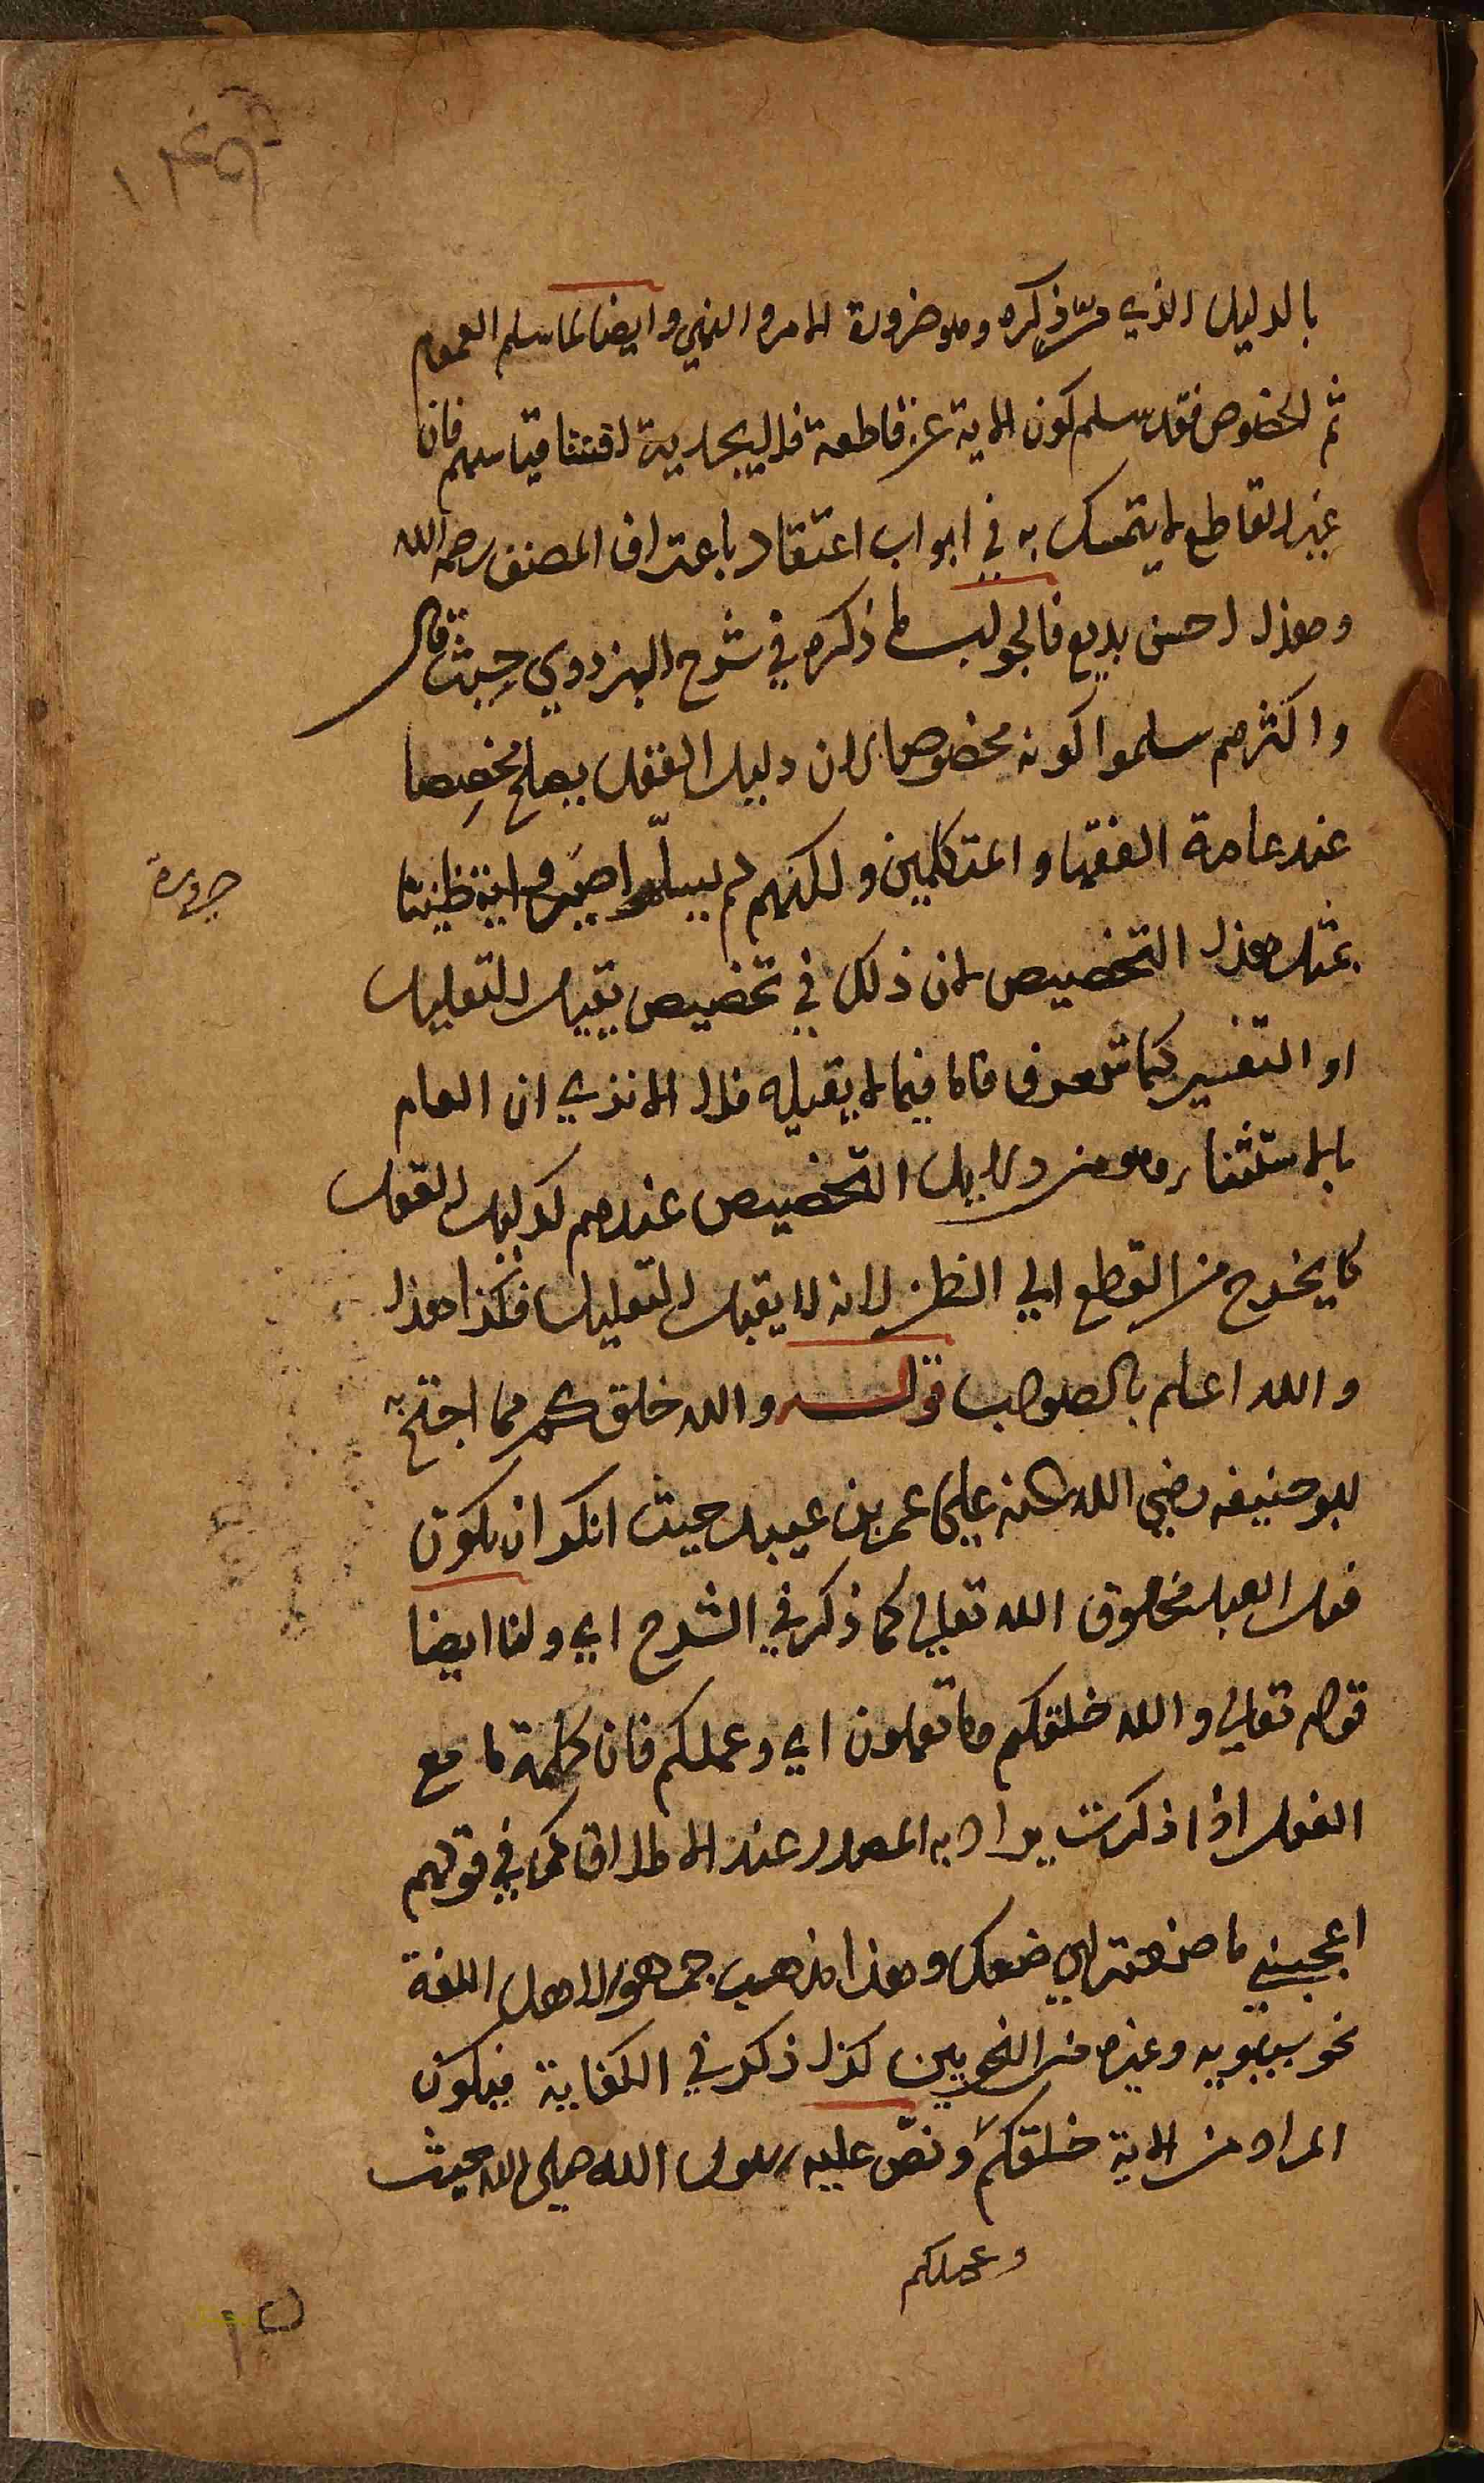 بالدليل الذي مرّ ذكره وهو ضرورة الامر والنهي وايضا لما سلم العموم
ثم الخصوص فقد سلم كون الاية غير قاطعة فلا يجديه قياسهم فان
غير القاطع لا يتمسك به في ابواب اعتقاد باعتراف المصنف رحمه الله
وهذا احسن بديع فالجواب ما ذكره في شرح البزدوي حيث قال
واكثرهم سلموا كونه مخصوصا لان دليل العقل يصلح مخصصا
عند عامة الفقها والمتكلمين ولكنهم لم يسلّموا صيرورته ظنيا
بمثل هذا التخصيص لان ذلك في تخصيص يقبل التعليل
او التفسير كما عرف فاما فيما لا يقبله فلا الا نري ان العام
بالاستثناء وهو من دلايل التخصيص عندهم كدليل العقل
لا يخرج من القطع الي الظن لانه لا يقبل التعليل فكذا هذا
والله اعلم بالصواب قوله والله خلقكم مما احتج به
ابو حنيفه رضي الله عنه علي عمر بن عبيد حيث انكر ان يكون
فعل العبد مخلوق الله تعالي كما ذكر في الشرح اي ولنا ايضا
قوله تعالي والله خلقكم وما تعملون اي وعملكم فان كلمة ما مع
الفعل اذا ذكرت يراد به المصدر عند الاطلاق كما في قولهم
اعجبني ما صنعت اي صنعك وهذا مذهب جمهور اهل اللغة
نحو سيبويه وغيره من النحويين كذا ذكر في الكفاية فيكون
المراد من الاية خلقكم ونصّ عليه رسول الله صلى الله حيث
وعملكم